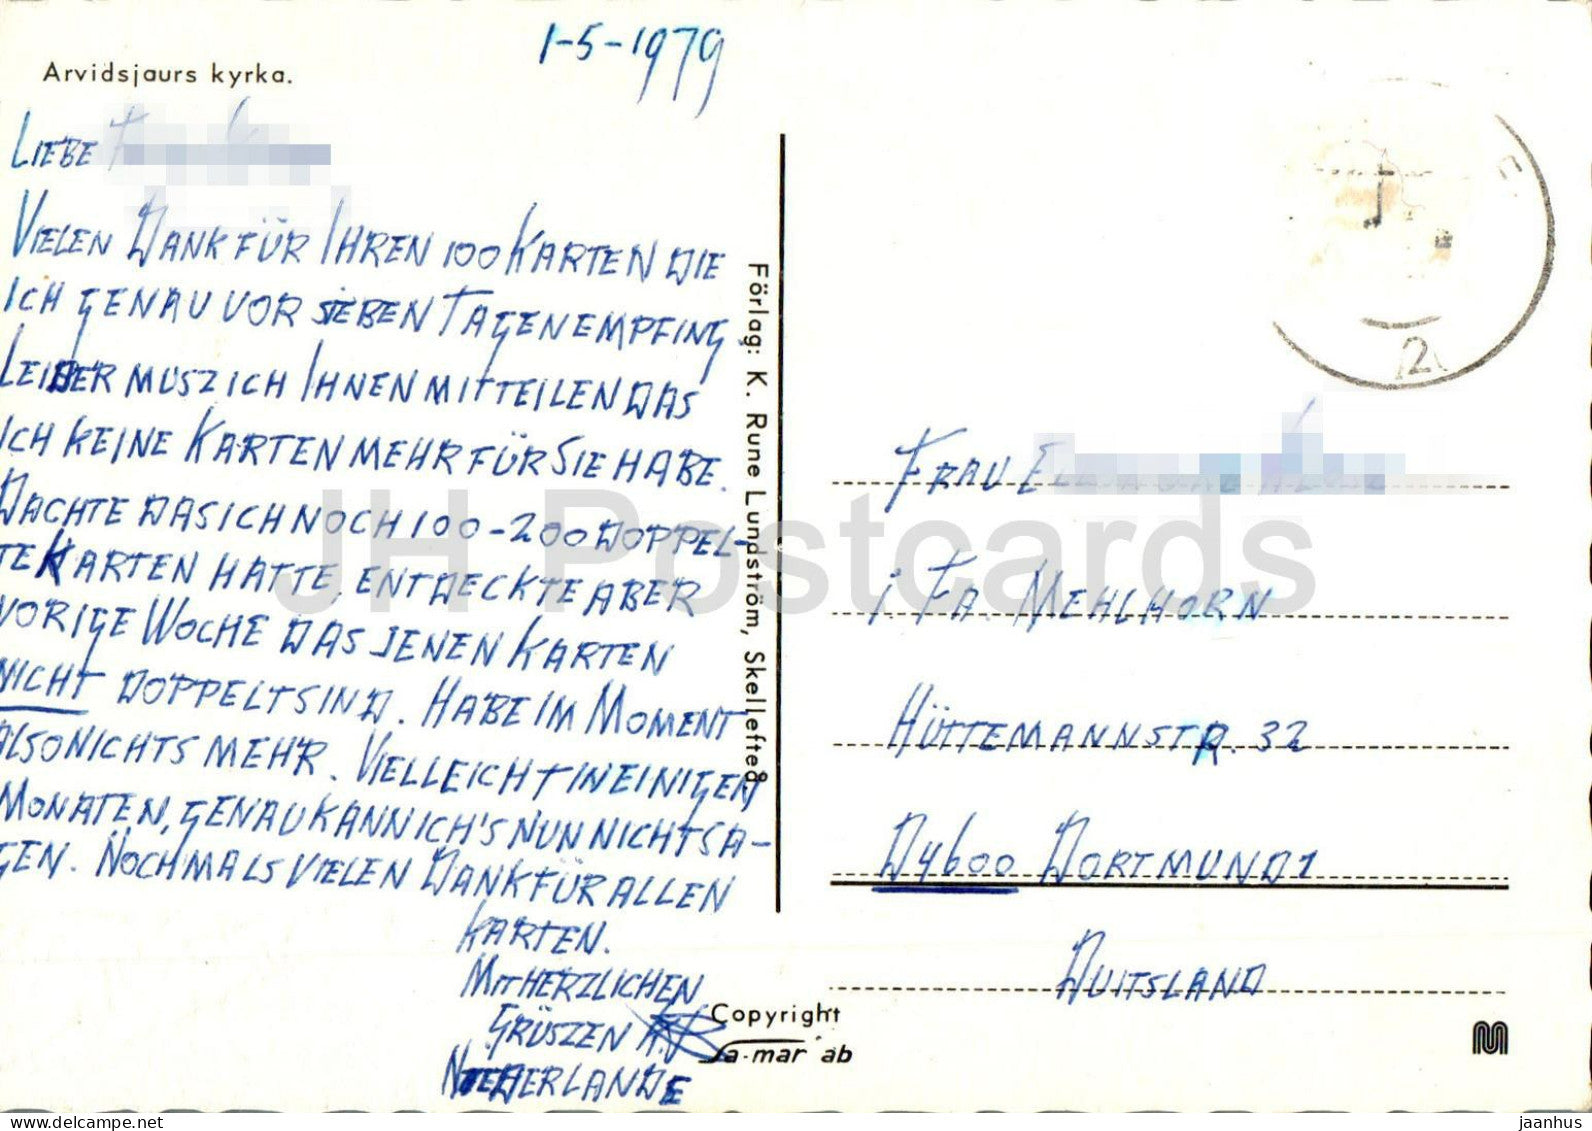 1-5-1979
Arvidsjaurs kyrka.
LIEBE
VIELEN DANK FÜR IHREN 100 KARTEN DIE
ICH GENAU VOR SIEBEN TAGEN EMPFING
LEIDER MUSZ ICH IHNEN MITTEILEN DAS
ICH KEINE KARTEN MEHR FÜR SIE HABE.
DACHTE DAS ICH NOCH 100-200 DOPPEL-
TE KARTEN HATTE, ENTDECKTE ABER
VORIGE WOCHE DAS JENEN KARTEN
NICHT DOPPELT SIND. HABE IM MOMENT
ALSO NICHTS MEHR. VIELLEICHT IN EINIGEN
MONATEN, GENAU KANN ICH'S NUN NICHT SA-
GEN. NOCHMALS VIELEN DANK FÜR ALLEN
KARTEN.
MIT HERZLICHEN
GRÜSZEN
NIEDERLANDE
Förlag: K. Rune Lundström, Skellefteå
Copyright
Sa-mar ab
FRAU
i. FA. MEHLHORN
HÜTTEMANNSTR. 32
D4600 DORTMUND 1
DUITSLAND
M
JH Postcards
jaanhus